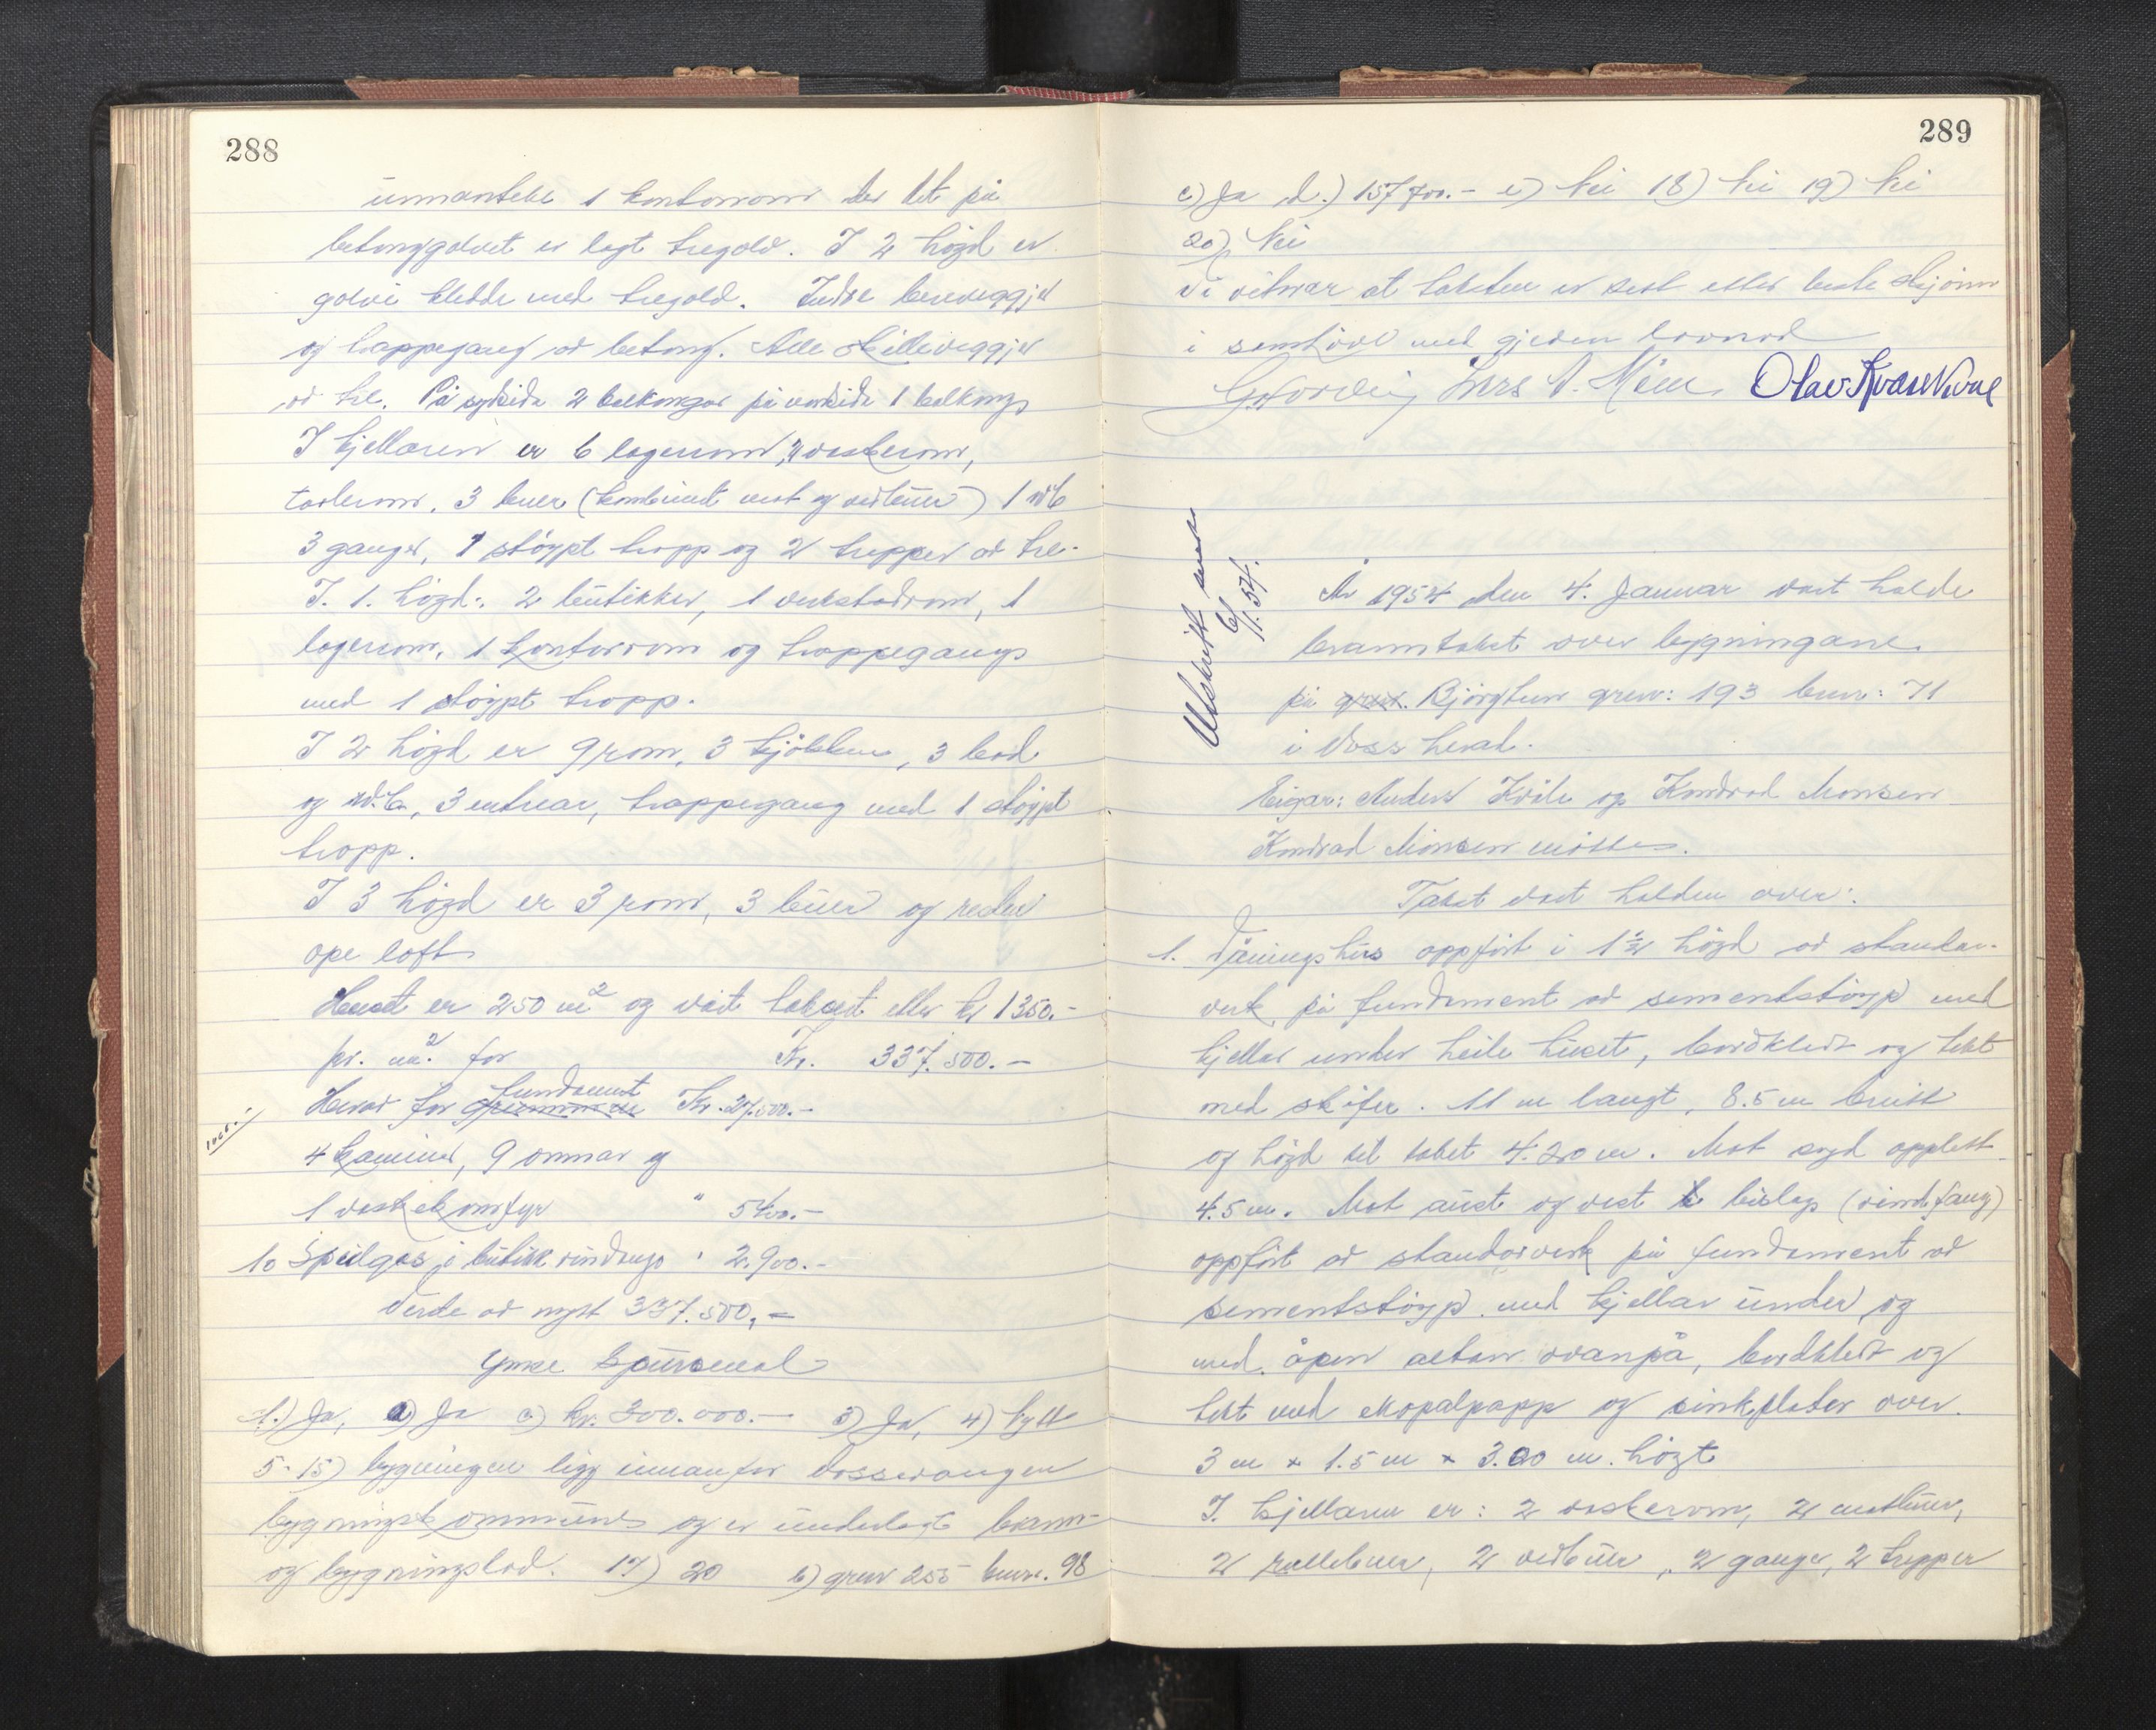 288
unnanteke 1 kontorrom der det på
betonggolvet er lagt tregolv. I 2 högd er
golvi kledde med tregolv. Indre bereveggjer
og trappegang av betong. Alle skilleveggjer
av tre. På sydsida 2 balkongar på nordsida 1 balkong
I kjellaren er 6 lagerrom, 2 vaskerom,
tørkerom, 3 buer (kombinert mat og vedbuer) 1 w.c
3 ganger, 1 støypt trapp og 2 trapper av tre.
I. 1. högd: 2 butikker, 1 verkstadrom, 1
lagerrom, 1 kontorrom og trappegang
med 1 støypt trapp.
I 2 högd er 9 rom, 3 kjökken, 3 bad
og w.c., 3 entrear, trappegang med 1 støypt
trapp.
I 3 högd er 3 rom, 3 buer og resten
ope loft
Huset er 250 m² og vart taksert etter kr 1350.-
pr. m². for Kr. 337.500.-
Herav for fundament Kr. 27.500.-
4 kaminer, 9 omnar og
1 vaskekomfyr " 5400.-
10 Speilglas i butikk vindaugo " 2.900.-
Verde av nytt 337.500,-
Ymse Spursmal
1.) Ja, a) Ja c) kr. 300.000.- 3) Ja, 4)
5-15) bygningen ligg innanfor Vossevangen
bygningskommune og er underlagt brann-
og bygningslov. 17) 20 b) gnr 255 bnr. 98
289
c) Ja d.) 157700.- e) Nei 18) Nei 19) Nei
20) Nei
Vi vitnar at taksten er sett etter beste skjönn
i samhöve med gjeven lovnad
Lars Olav
Utskrift sendt
6/1.54.
År 1954 den 4. Januar vart halde
branntakst over bygningane
på Björgtun gnr: 193 bnr: 71
i Voss herad.
Eigar: Anders Kvåle og Konrad Monsen
Konrad Monsen møtte.
Takst vart halden over:
1. Våningshus oppfört i 1 1/2 högd av standar-
verk på fundament av sementstöyp med
kjellar under heile huset, bordkledt og tekt
med skifer. 11 m langt, 8.5 m breitt
og högd til taket 4.20 m. Mot syd opplett
4.5 m. Mot aust og vest bislag (vindfang)
oppfört av standarverk på fundament av
sementstöyp med kjellar under og
med åpen altan ovanpå, bordkledt og
tekt med papp og sinkplater over.
3 m x 1.5 m x 3.00 m. högt
I. kjellaren er: 2 vaskerom, 2 matbuer,
2 rullebuer, 2 vedbuer, 2 ganger, 2 trapper